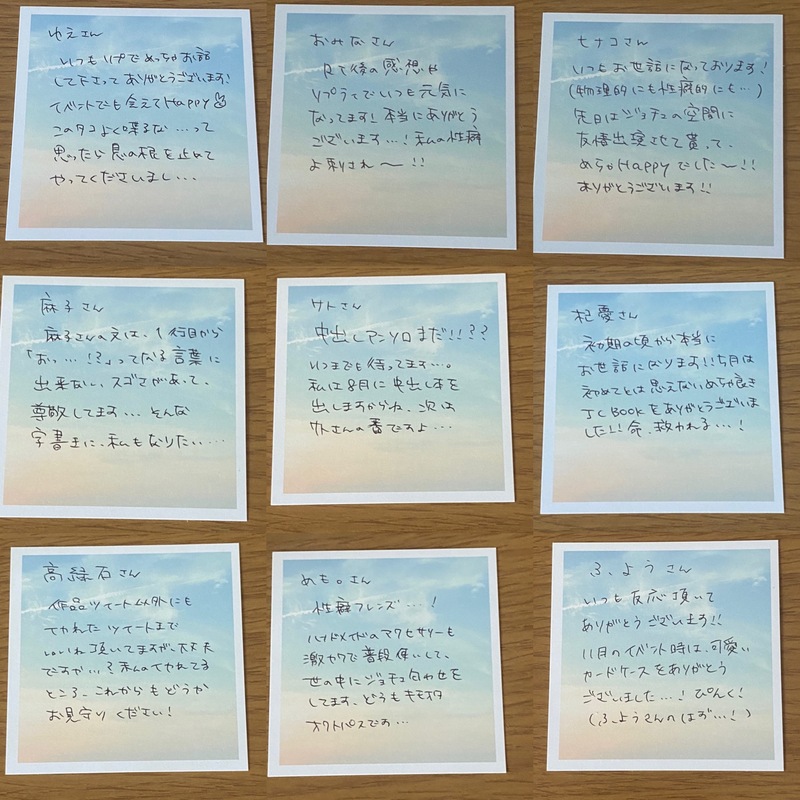 ゆえさん
いつもリプでめちゃお話
して下さってありがとうございます!
イベントでも会えてHappy
このタコよく喋るな…って
思ったら息の根を止めて
やってくださいまし…
おみなさん
後の感想や
リプライでいつも元気に
なってます!本当にありがとう
ございます…!私の性癖
よ刺され〜!!
ヒナコさん
いつもお世話になっております!
(物理的にも性癖的にも…)
先日はジョチュの空間に
友情出演させて貰って、
めちゃHappyでした〜!!
ありがとうございます!!
麻子さん
麻子さんの文は、1行目から
「おっ…!?」ってなる言葉に
出来ないスゴさがあって、
尊敬してます…そんな
字書きに、私もなりたい……
サトさん
中出しアンソロまだ!!??
いつまでも待ってます…。
私は8月に中出し本を
出しますからね、次は
サトさんの番ですよ…
杞憂さん
初期の頃から本当に
お世話になります!!5月は
初めてとは思えないめちゃ良き
JC BOOKをありがとうございま
した!!命、救われる…!
高緑石さん
作品ツイート以外にも
イカれたツイートまで
いいね頂いてますが、大丈夫
ですか…?私のイかれてる
ところ、これからもどうか
お見守りください!
めも。さん
性癖フレンズ…!
ハンドメイドのアクセサリーも
激カワで普段使いして、
世の中にジョチュ匂わせを
してます、どうもキモオタ
オクトパスです…
ふ、ようさん
いつも反応頂いて
ありがとうございます!!
11月のイベント時は、可愛い
カードケースをありがとう
ございました…!ぴんく!
(ふ、ようさんのはず…!)